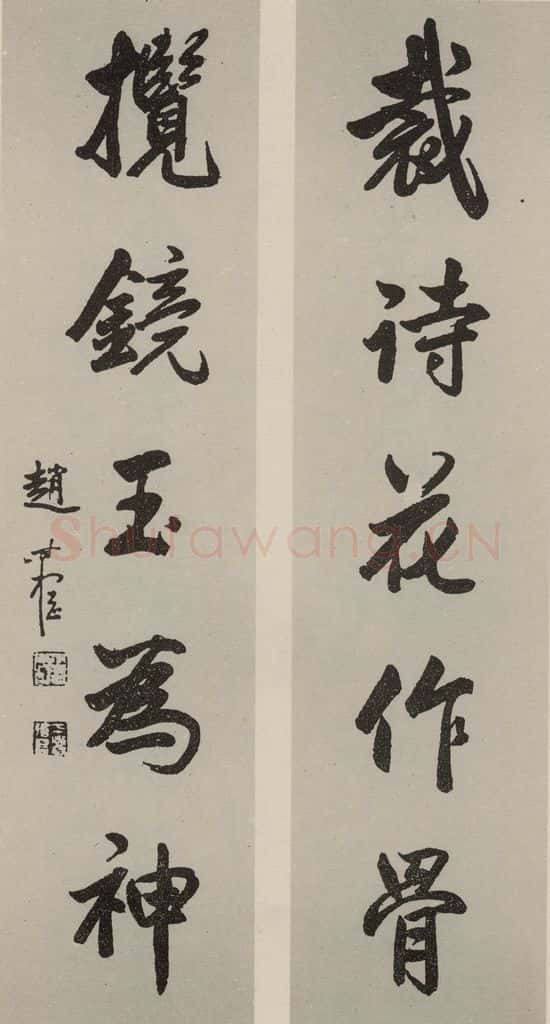 裁诗花作骨
攬鏡玉為神
趙叔孺
Shufawang.CN